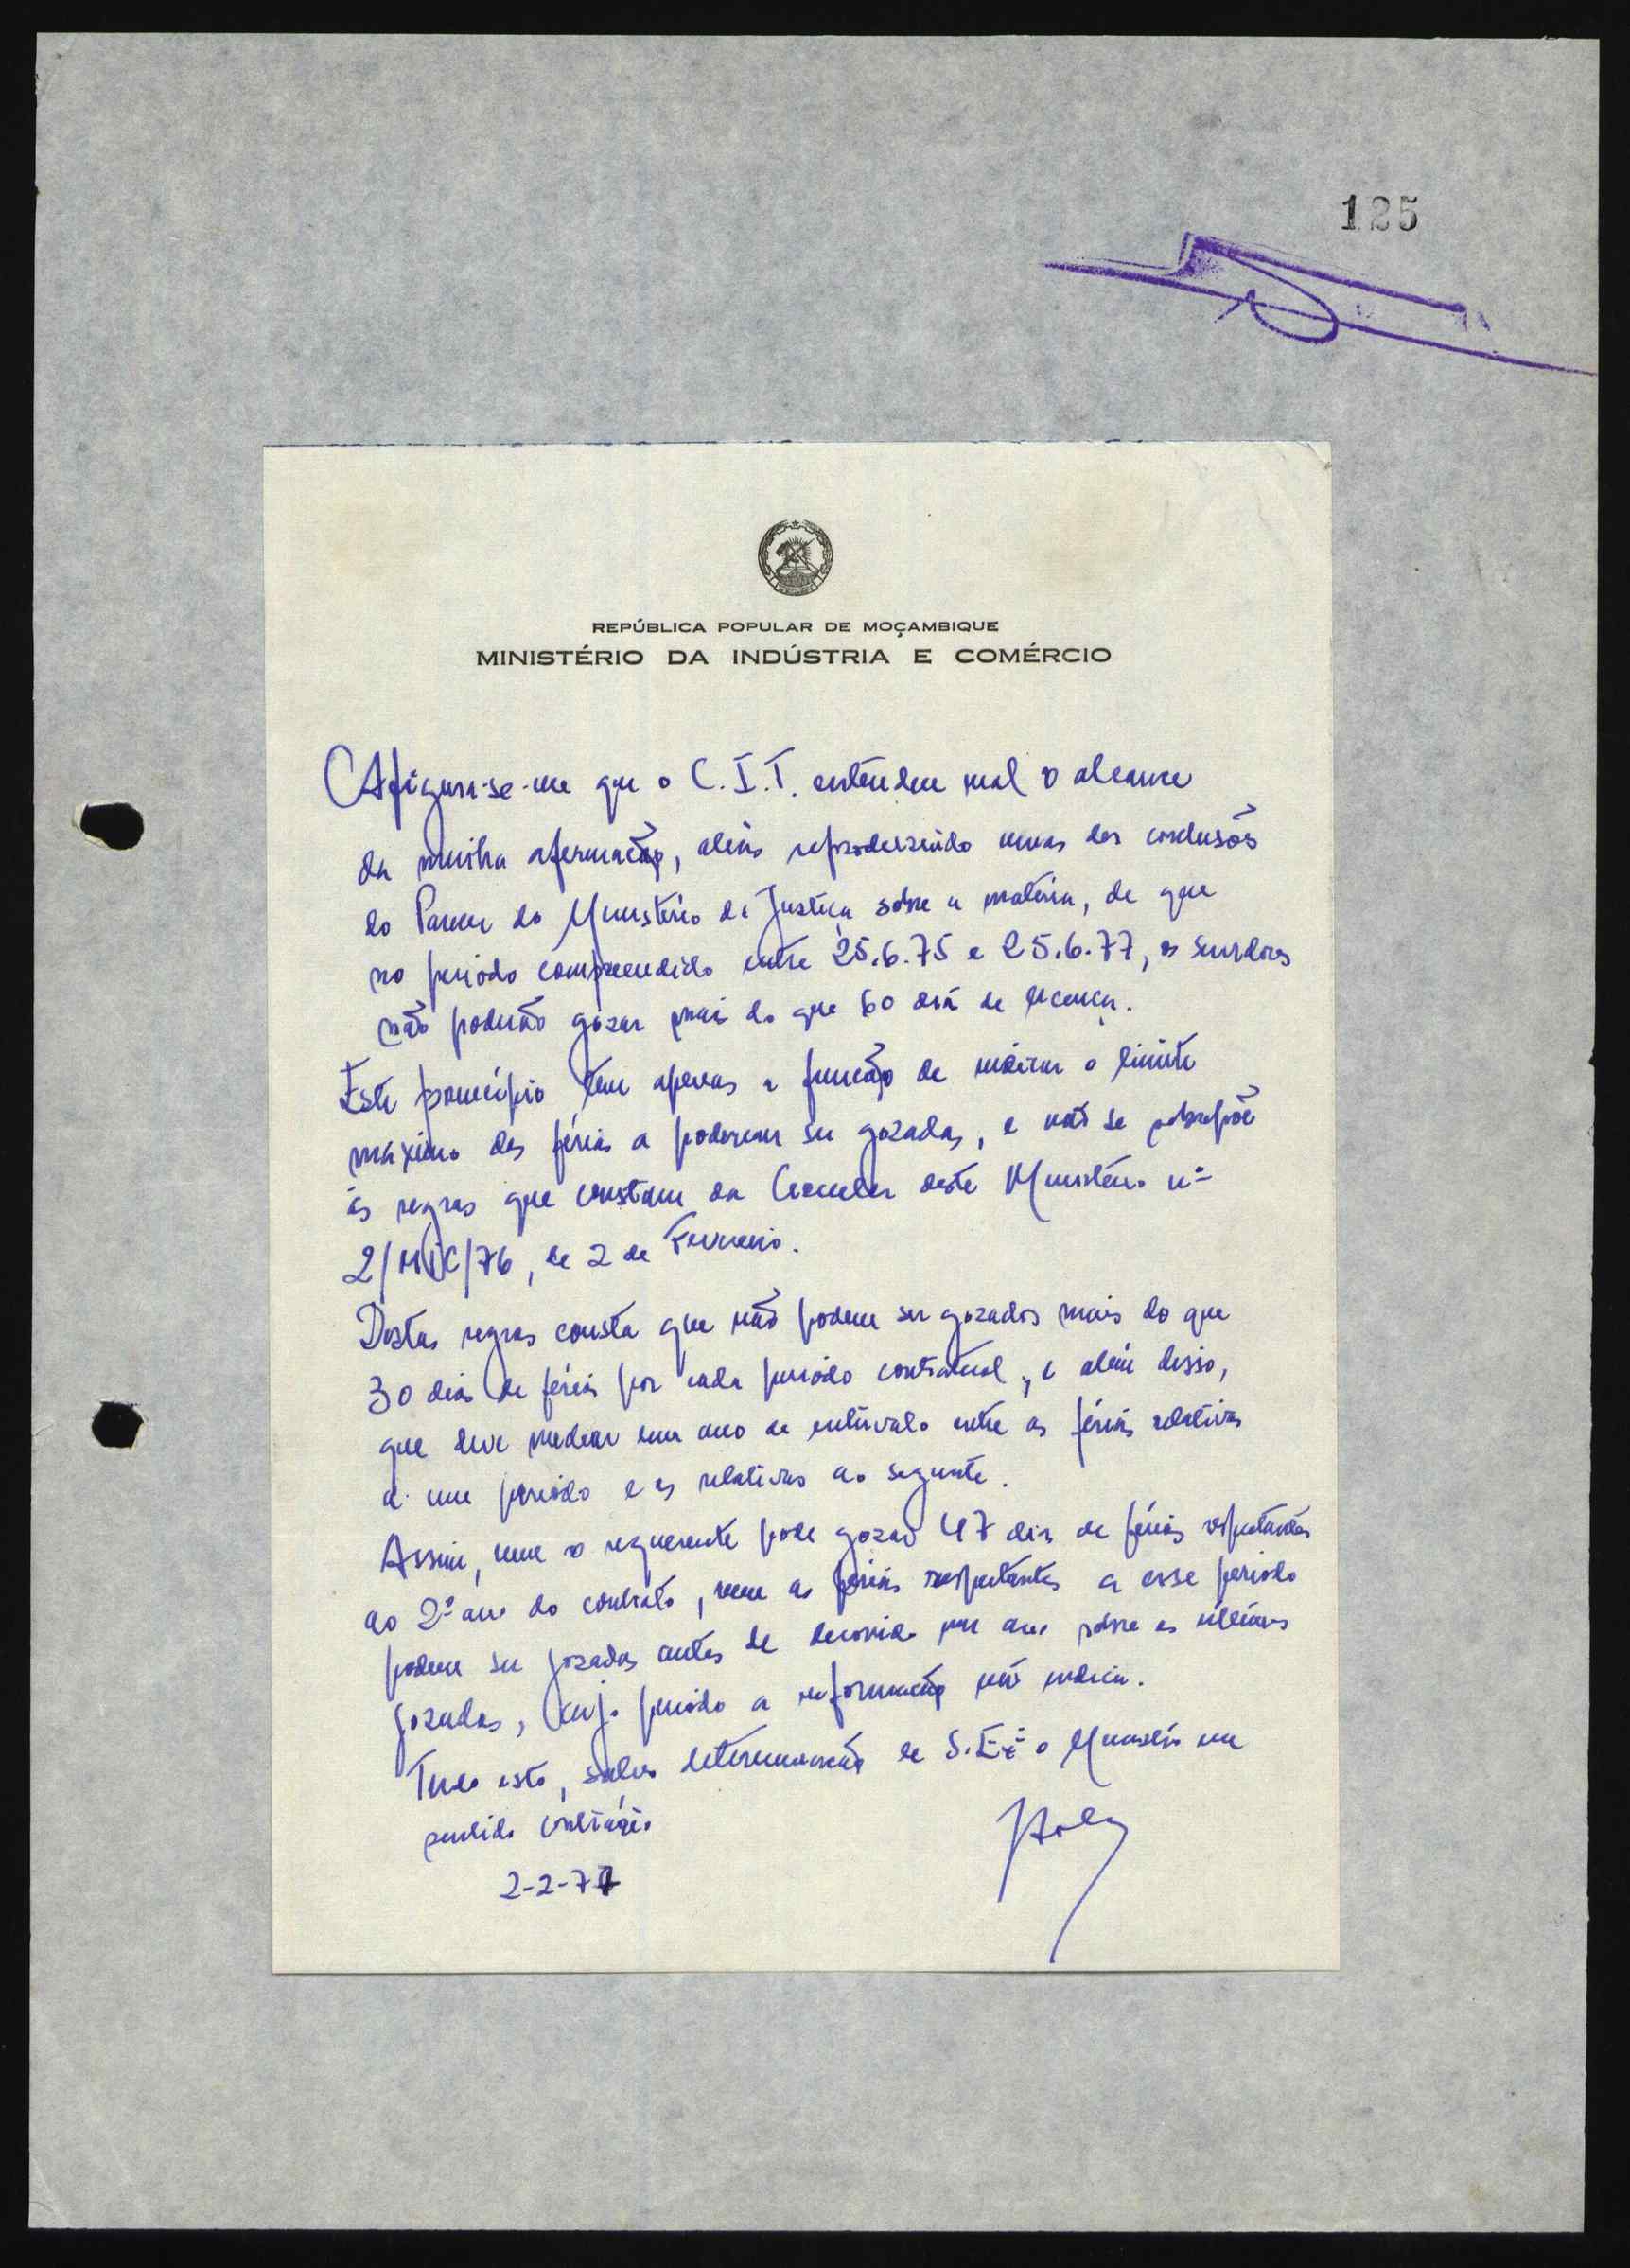 125
REPÚBLICA POPULAR DE MOÇAMBIQUE
MINISTÉRIO DA INDÚSTRIA E COMÉRCIO
Afigura-se-me que o C.I.T. entendeu mal o alcance
da minha afirmação, aliás reproduzindo umas das conclusões
do Parecer do Ministério da Justiça sobre a matéria, de que
no período compreendido entre 25.6.75 e 25.6.77, os servidores
não poderão gozar mais do que 60 dias de licença.
Este princípio tem apenas a função de indicar o limite
máximo das férias a poderem ser gozadas, e não se sobrepõe
às regras que constam da Circular deste Ministério nº
2/MIC/76, de 2 de Fevereiro.
Destas regras consta que não podem ser gozados mais do que
30 dias de férias por cada período contratual, e além disso,
que deve mediar um ano de intervalo entre as férias relativas
a um período e as relativas ao seguinte.
Assim, nem o requerente pode gozar 47 dias de férias respeitantes
ao 2º ano do contrato, nem as férias respeitantes a esse período
podem ser gozadas antes de decorrido um ano sobre as últimas
gozadas, cujo período a informação não indica.
Tudo isto, salvo determinação de S. Exª o Ministro em
sentido contrário
2-2-77